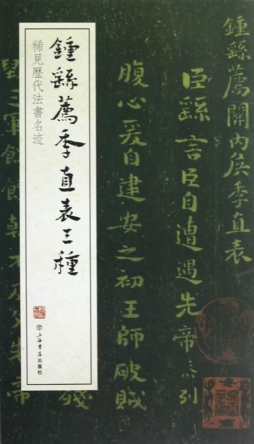 鍾繇薦關內侯季直表
臣繇言臣自遭遇先帝忝列
腹心爰自建安之初王師破賊
鍾繇薦季直表三種
稀見歷代法書名迹
上海書店出版社
三軍餽饟朝